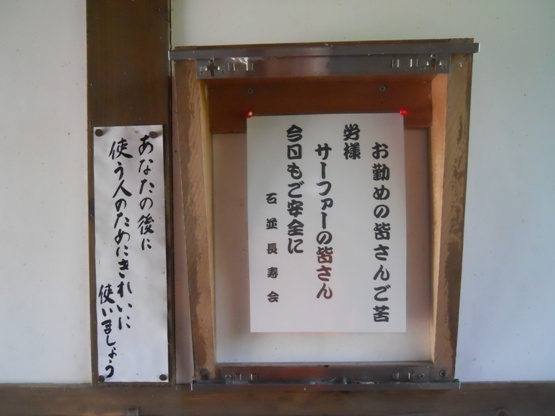 お勤めの皆さんご苦
労様
サーファーの皆さん
今日もご安全に
石並長寿会
あなたの後に
使う人のためにきれいに
使いましょう